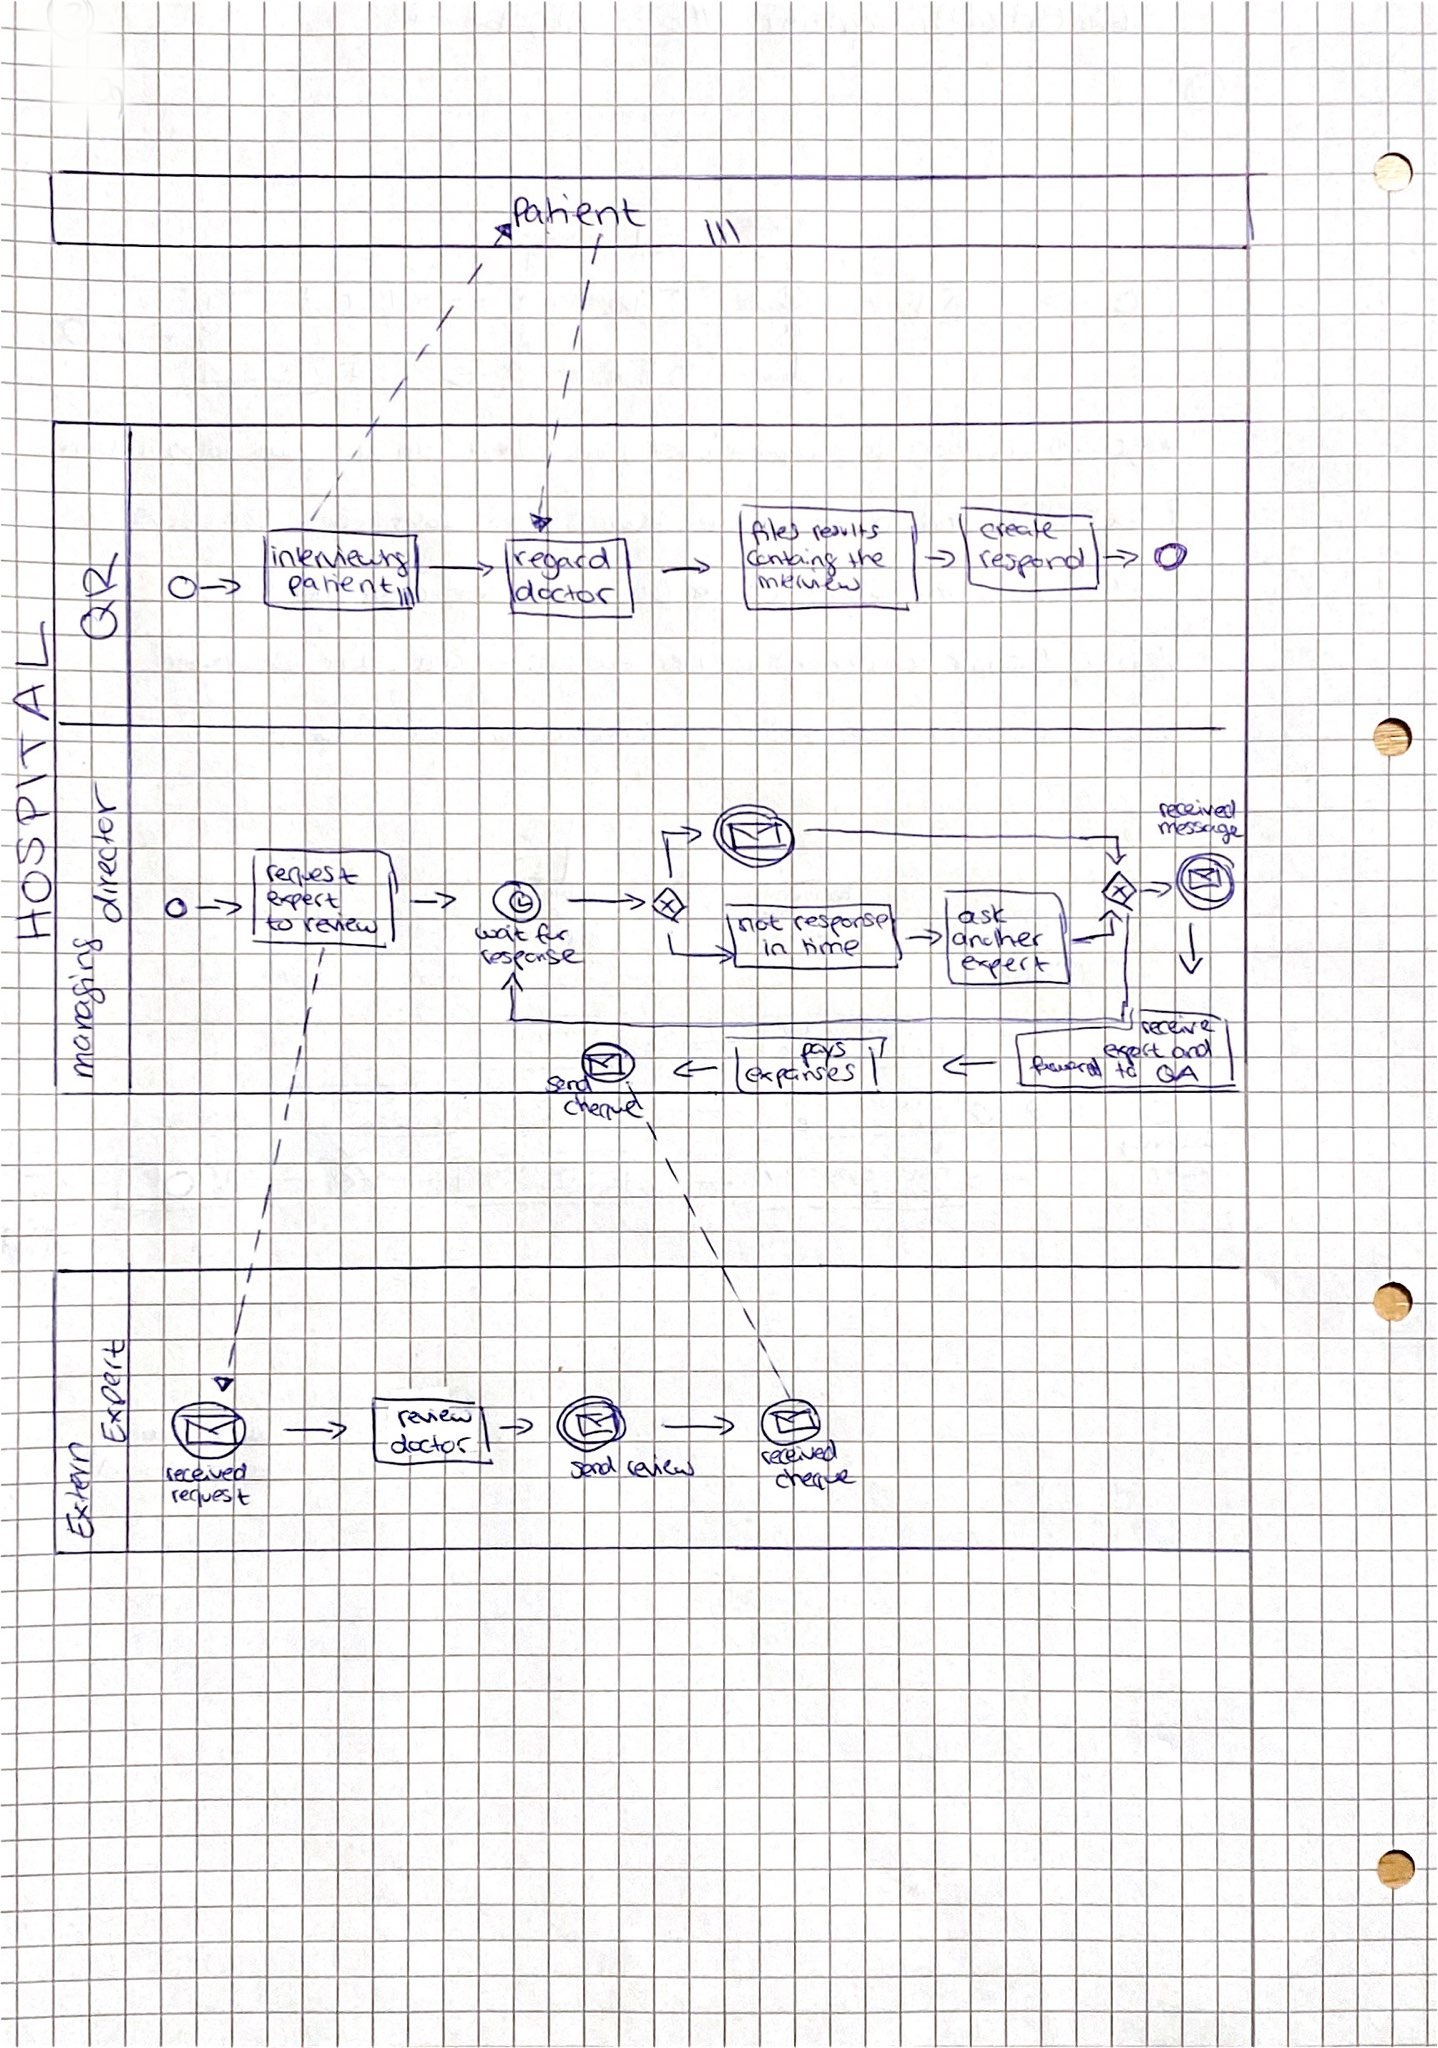 Patient
HOSPITAL
QR
interviewing
patient
regard
doctor
files results
containg the
interview
create
respond
managing
director
request
expert
to review
wait for
response
not response
in time
ask
another
expert
received
message
receive
expert and
forward to QA
pays
expanses
send
cheque
Extern
Expert
received
request
review
doctor
send review
received
cheque